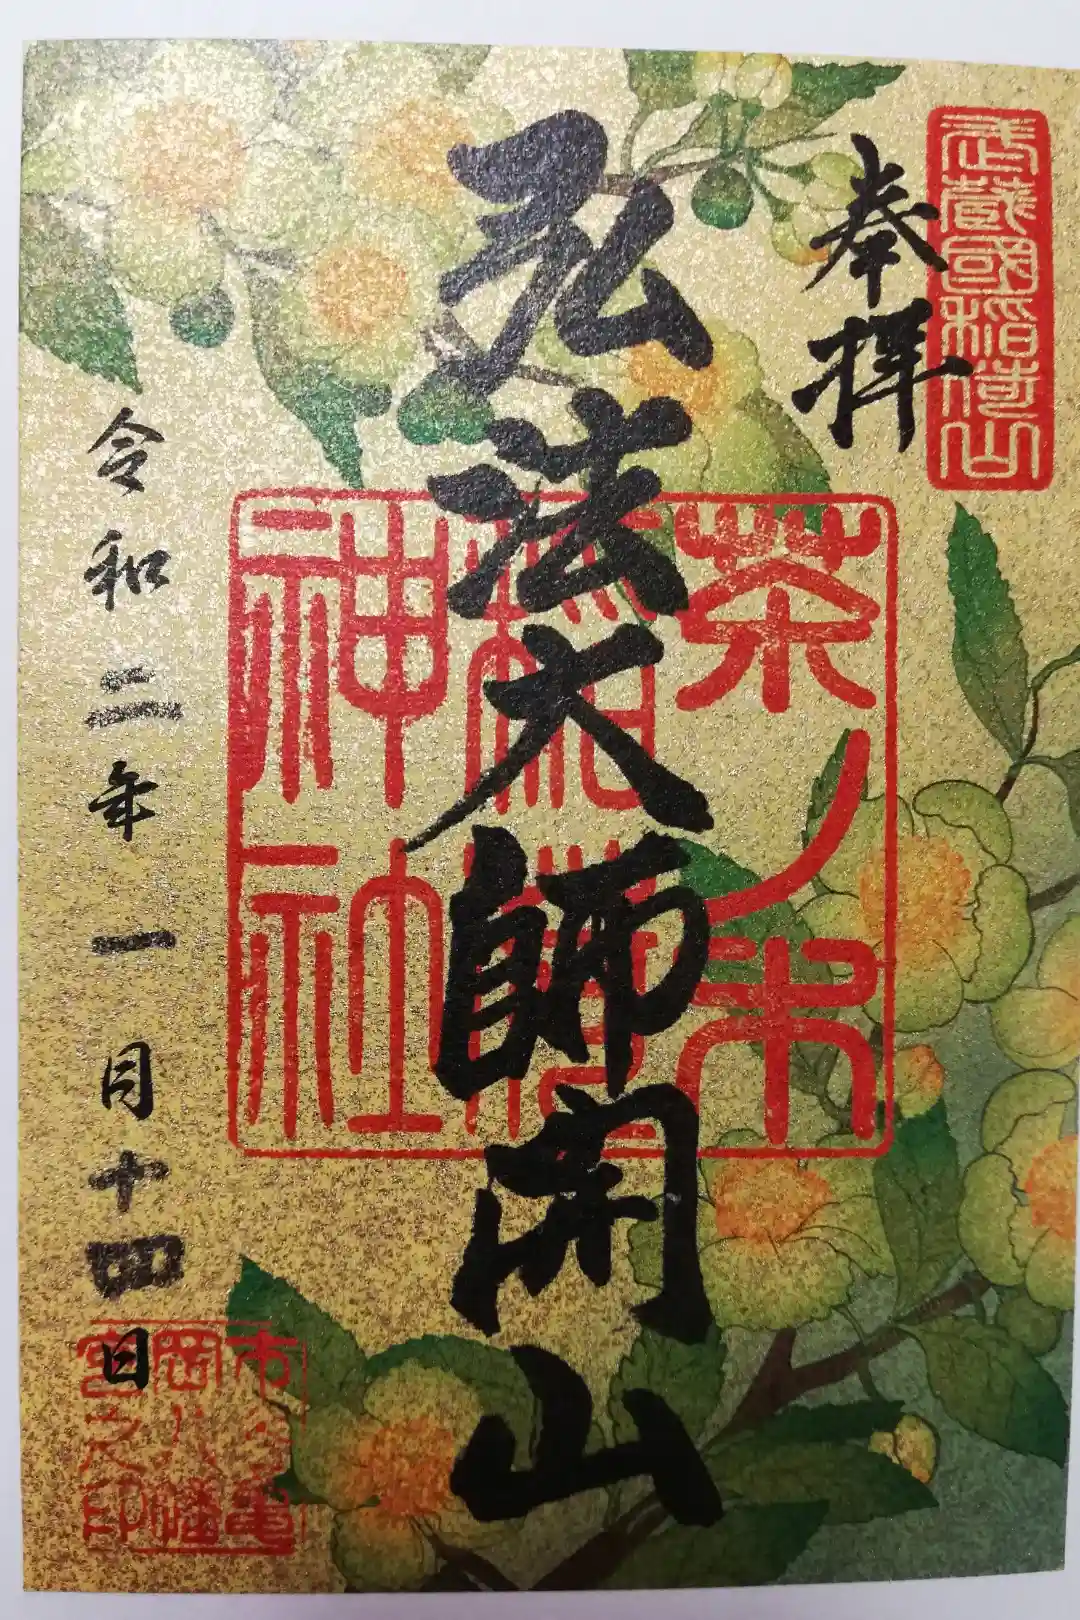 武蔵國稲荷山
奉拝
茶ノ木
稲荷
神社
弘法大師開山
令和二年一月十四日
市谷亀
岡八幡
宮之印